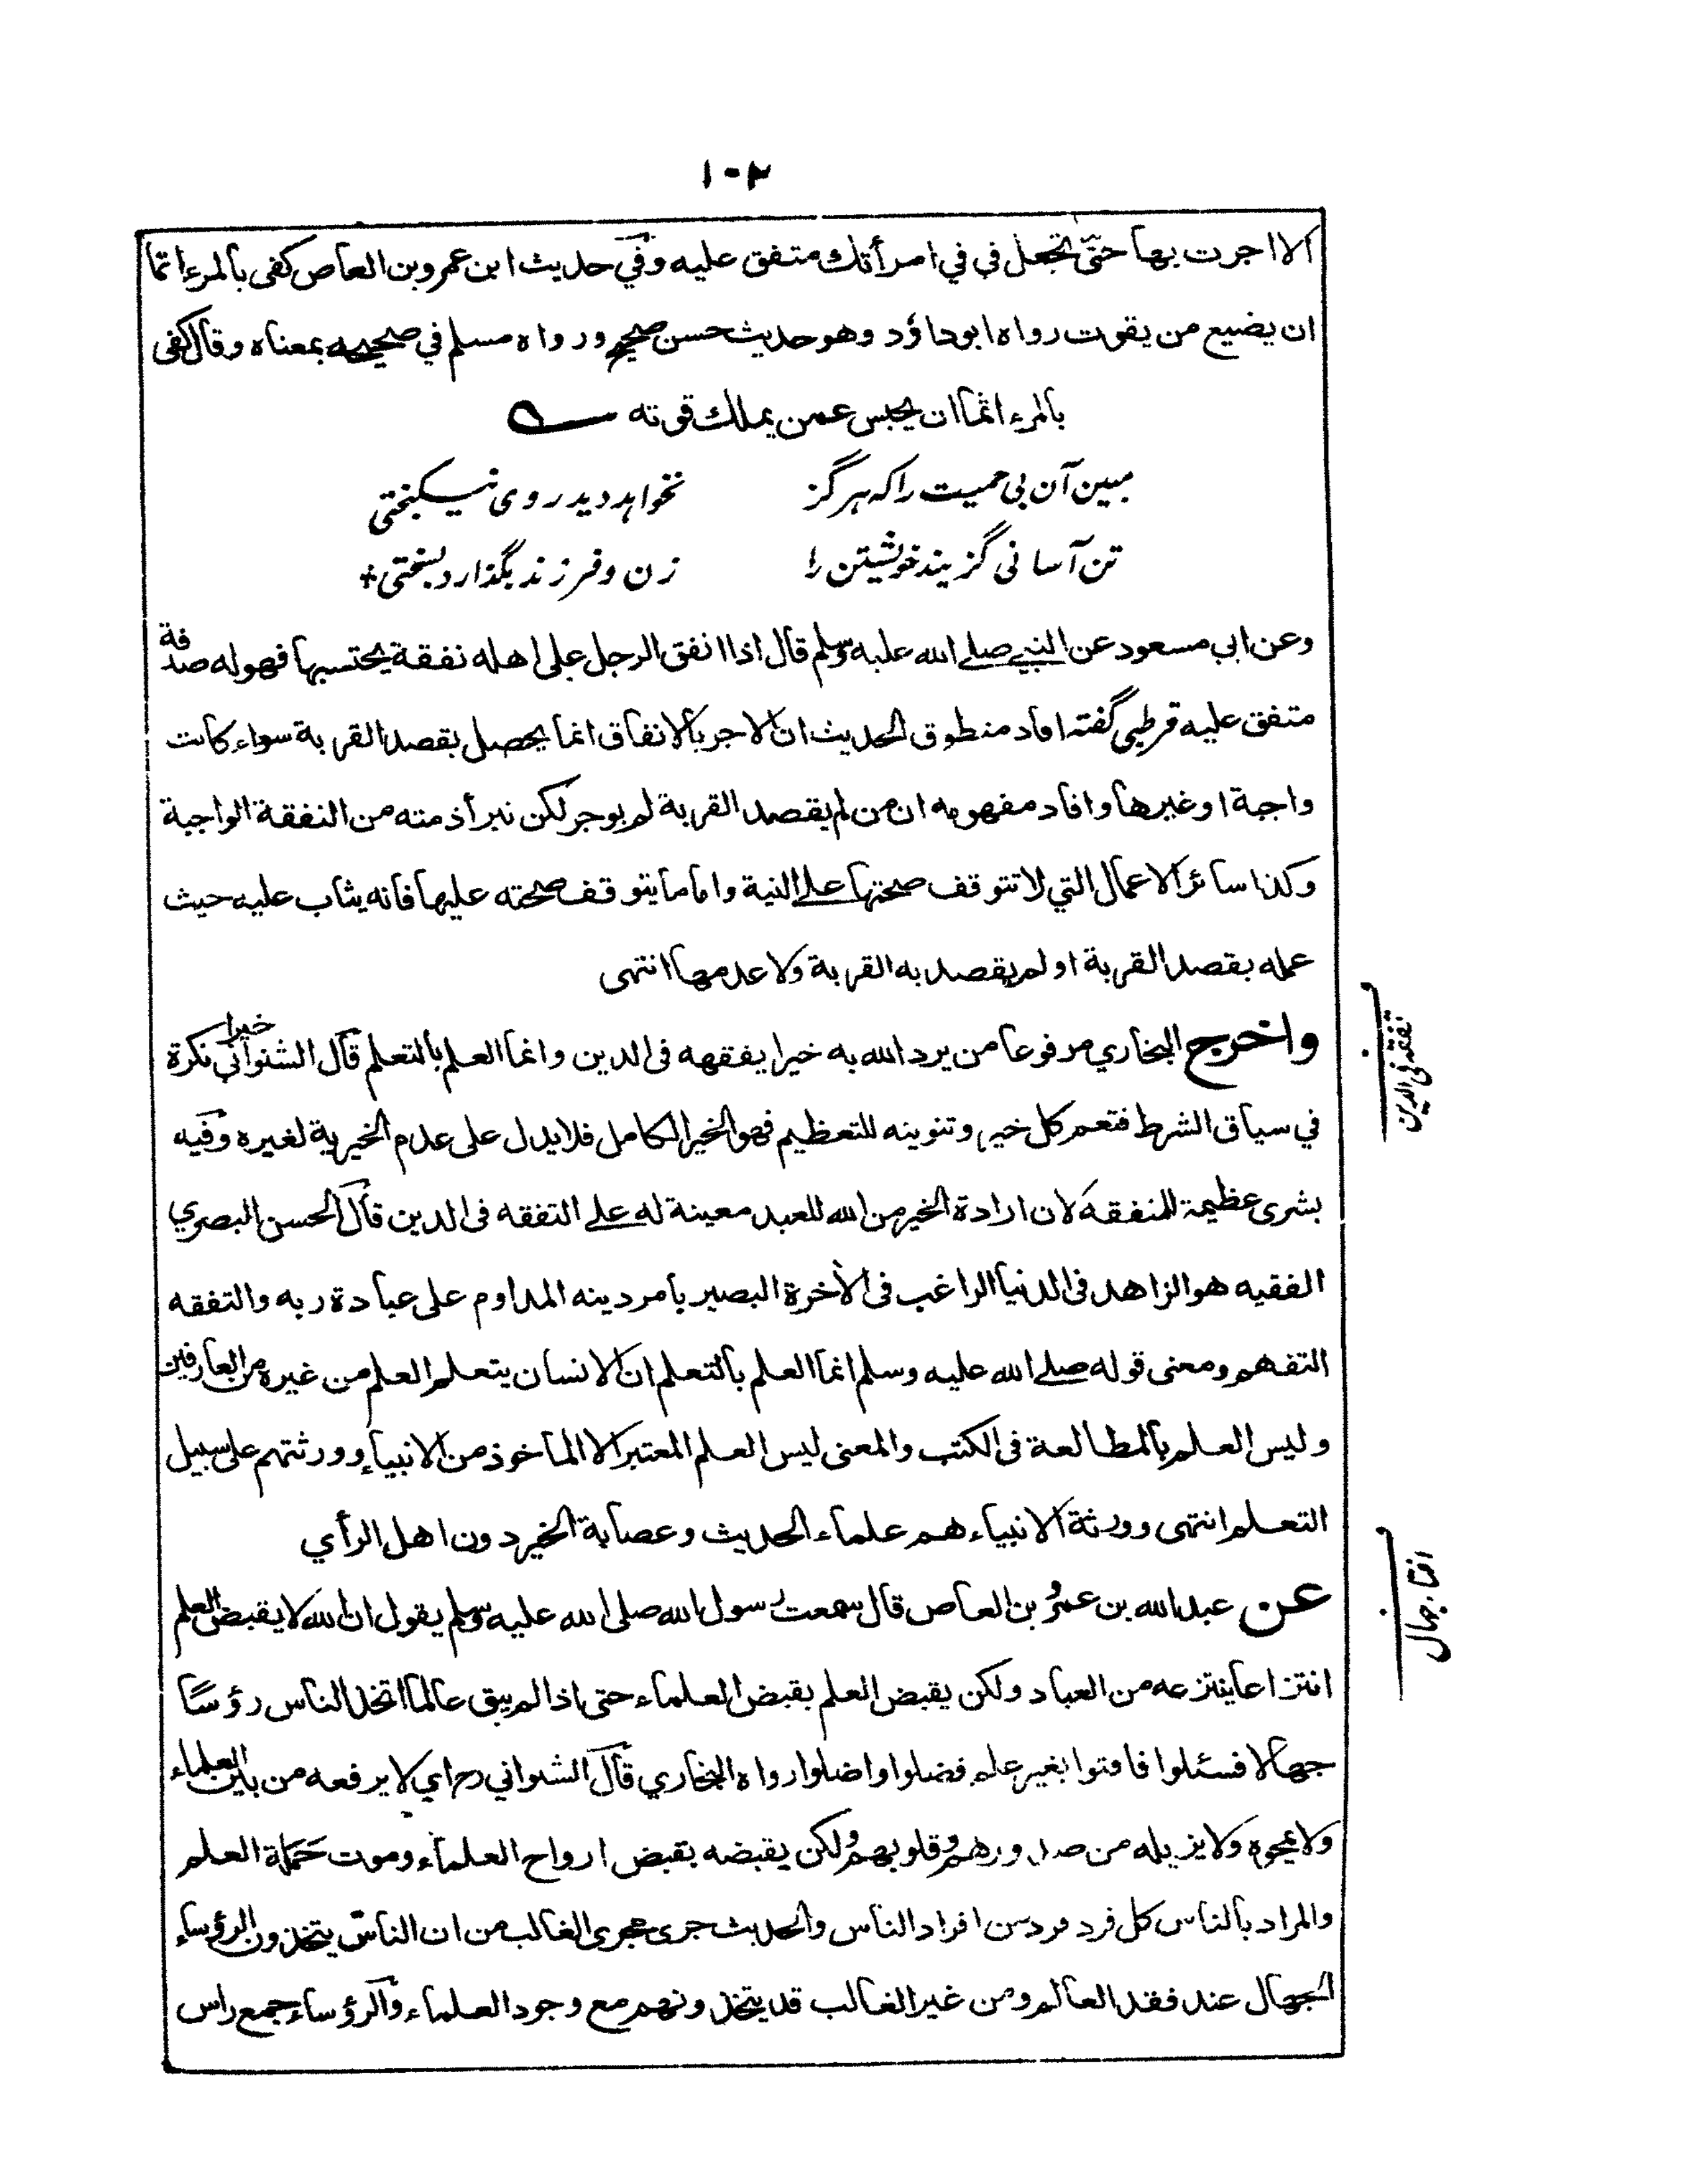 ١٠٢
الا اجرت بها حتّى تجعل في في امرأتك متفق عليه وفي حديث ابن عمرو بن العاص كفى بالمرء اثما
ان يضيع من يقوت رواه ابوداؤد وهو حديث حسن صحيح ورواه مسلم في صحيحه بمعناه وقال كفى
بالمرء اثما ان يحبس عمن يملك قوته
مبین آن بی حمیت را که هرگز نخواهد دید روی نیکبختی
تن آسانی گزیند خویشتن را زن و فرزند بگذارد بسختی
وعن ابي مسعود عن النبي صلے الله عليه وسلم قال اذا انفق الرجل على اهله نفقة يحتسبها فهو له صدقة
متفق عليه قرطبي گفته افاد منطوق الحديث ان الاجر بالانفاق انما يحصل بقصد القربة سواء كانت
واجبة او غيرها وافاد مفهومه ان من لم يقصد القربة لم يوجر لكن تبرأ ذمته من النفقة الواجبة
وكذا سائر الاعمال التي لا تتوقف صحتها علے النية واما ما يتوقف صحته عليها فانه يثاب عليه حيث
عمله بقصد القربة او لم يقصد به القربة ولا عدمها انتهى
واخرج البخاري مرفوعا من يرد الله به خيرا يفقهه فى الدين وانما العلم بالتعلم قال الشنواني خيرا نكرة
تفقه فی الدین
في سياق الشرط فتعم كل خير وتنوينه للتعظيم فهو الخير الكامل فلا يدل على عدم الخيرية لغيره وفيه
بشرى عظيمة للمتفقه لان ارادة الخير من الله للعبد معينة له علے التفقه فى الدين قال الحسن البصري
الفقيه هو الزاهد فى الدنيا الراغب فى الأخرة البصير بامر دينه المداوم على عبادة ربه والتفقه
التفهم ومعنى قوله صلے الله عليه وسلم انما العلم بالتعلم ان الانسان يتعلم العلم من غيره من العارفين
وليس العلم بالمطالعة فى الكتب والمعنى ليس العلم المعتبر الا الماخوذ من الانبياء وورثتهم على سبيل
التعلم انتهى وورثة الانبياء هم علماء الحديث وعصابة الخير دون اهل الرأي
عن عبد الله بن عمرو بن العاص قال سمعت رسول الله صلى الله عليه وسلم يقول ان الله لا يقبض العلم
افتاء جهال
انتزاعا ينتزعه من العباد ولكن يقبض العلم بقبض العلماء حتى اذا لم يبق عالما اتخذ الناس رؤسًا
جهالا فسئلوا فافتوا بغير علم فضلوا واضلوا رواه البخاري قال الشنواني رح اي لا يرفعه من بين العلماء
ولا يمحوه ولا يزيله من صدورهم وقلوبهم ولكن يقبضه بقبض ارواح العلماء وموت حَمَلة العلم
والمراد بالناس كل فرد فرد من افراد الناس والحديث جرى مجرى الغالب من ان الناس يتخذون الرؤساء
الجهال عند فقد العالم ومن غير الغالب قد يتخذونهم مع وجود العلماء والرؤساء جمع راس